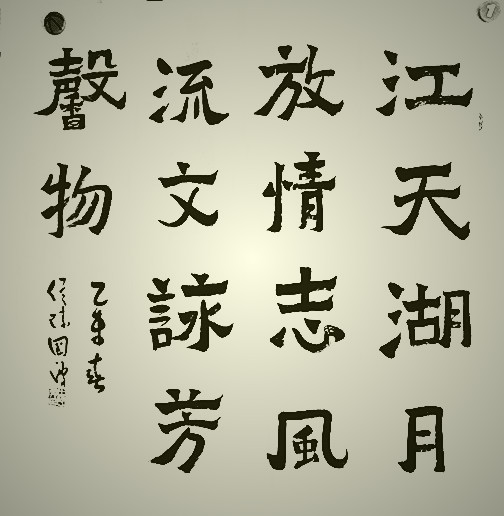 江天湖月
放情志風
流文詠芳
馨物
乙未春